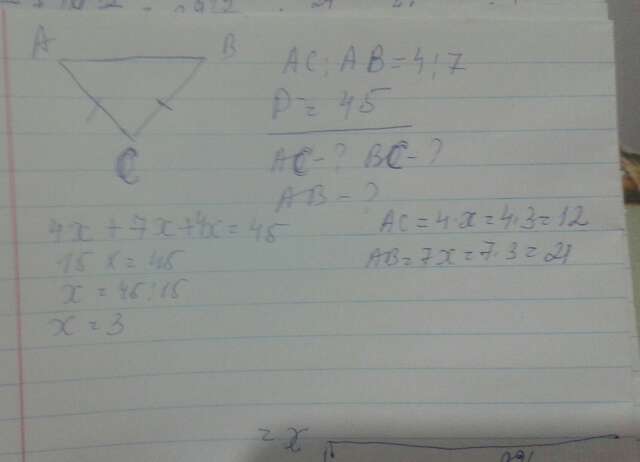 A B
AC : AB = 4 : 7
P = 45
C
AC - ? BC - ?
AB - ?
4x + 7x + 4x = 45
AC = 4·x = 4·3 = 12
15x = 45
AB = 7x = 7·3 = 21
x = 45 : 15
x = 3
= x